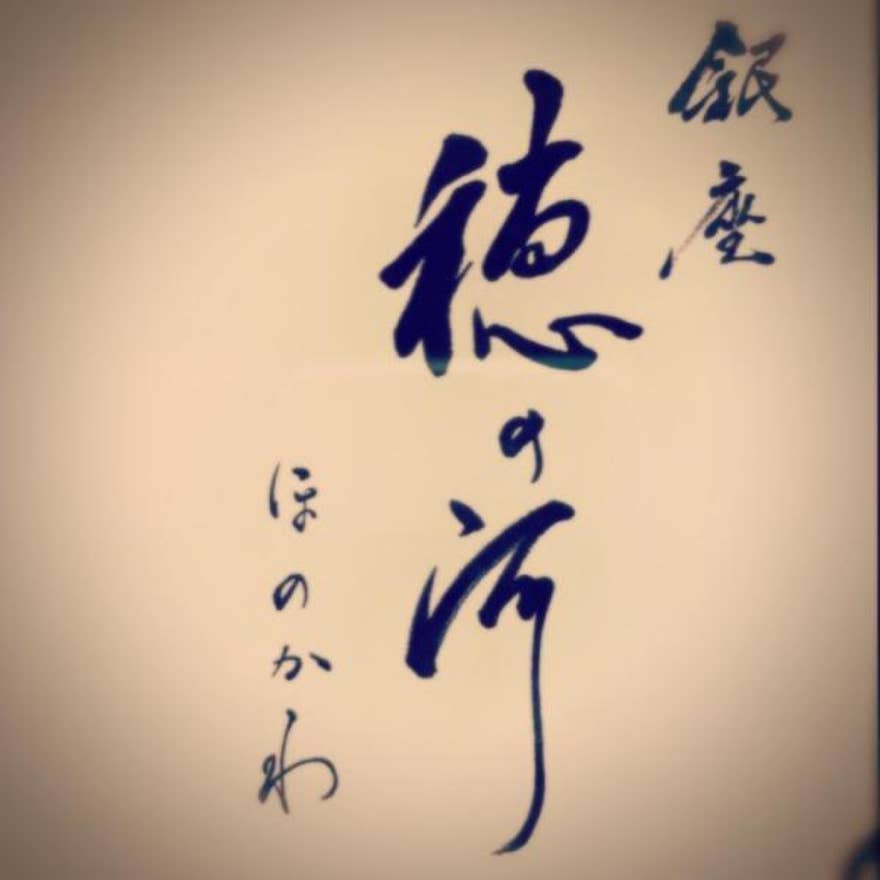 銀座
穂の河
ほのかわ